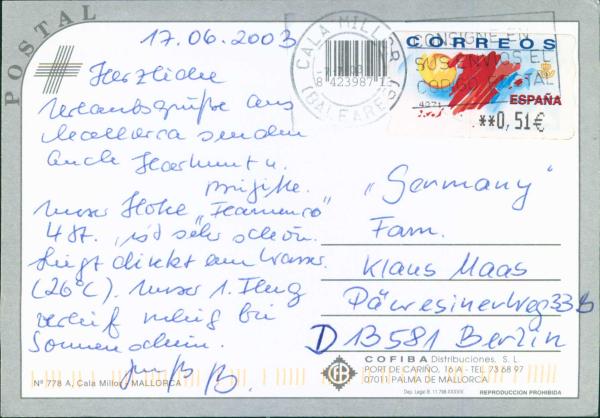 POSTAL
17.06.2003
Herzliche
Urlaubsgrüße aus
Mallorca senden
Euch Hartmut u.
Brigitte.
Unser Hotel „Flamenco"
4 St. ist sehr schön.
Liegt direkt am Wasser.
(26°C). Unser 1. Flug
verlief ruhig bei
Sonnenschein.
Gruß B.
CALA MILLOR
(BALEARES)
8 423987 13
CONSIGNE EN
SUS ENVIOS EL
CODIGO POSTAL
CORREOS
ESPAÑA
**0,51€
„Germany"
Fam.
Klaus Maas
33B
D 13581 Berlin
COFIBA Distribuciones, S. L
PORT DE CARIÑO, 16 A - TEL. 73 68 97
07011 PALMA DE MALLORCA
Nº 778 A, Cala Millor, MALLORCA
REPRODUCCION PROHIBIDA